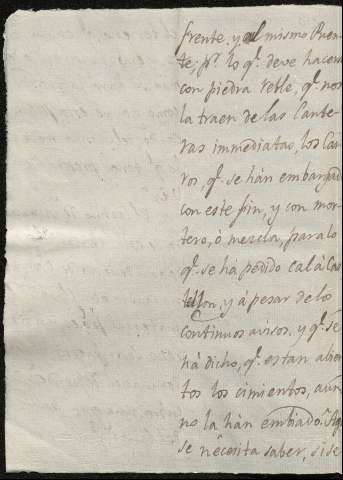 frente, y el mismo Puen-
te, pr. lo q.e deve hacerse
con piedra reble, q.e nos
la traen de las Cante-
ras immediatas, los Car-
ros, q.e se hán embargad
con este fin, y con mor-
tero, ó mezcla, para lo
q.e se há pedido cal á Cas-
tellon, y á pesar de lo
continuos avisos, y q.e se
há dicho, q.e estan abier-
tos los cimientos, aun
no la hán embiado. Aq
se necesita saber, si se